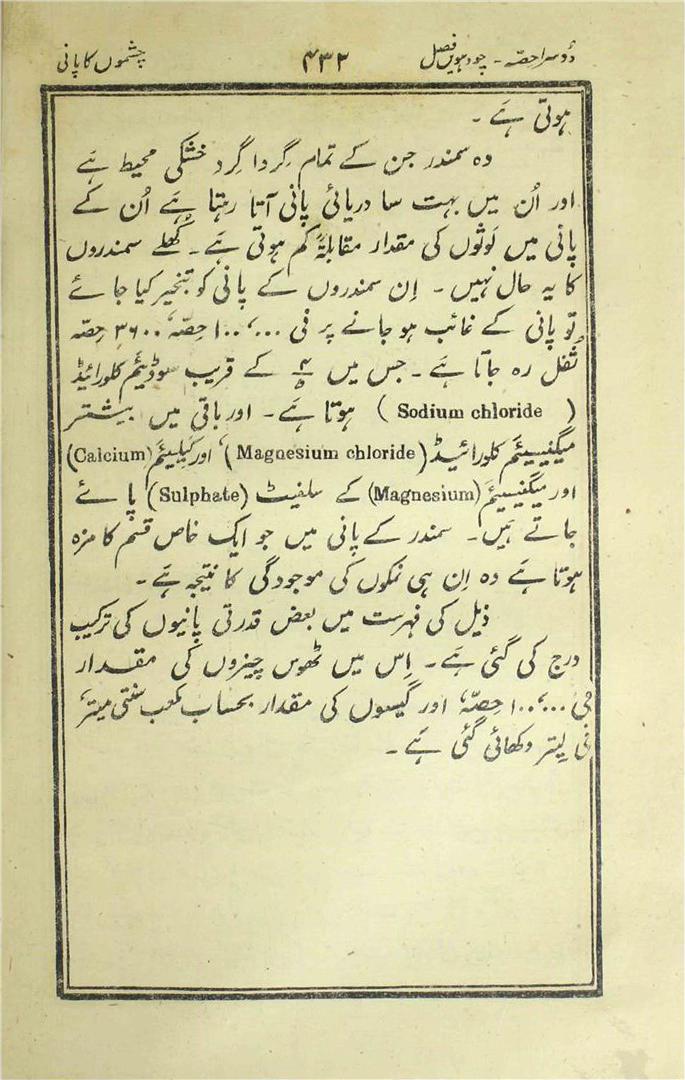 دُوسرا حصّہ - چودہویں فصل ۴۳۲ چشموں کا پانی
ہوتی ہَے -
وہ سمندر جن کے تمام گِردا گِرد خشکی محیط ہَے
اور اُن میں بہت سا دریائی پانی آتا رہتا ہَے اُن کے
پانی میں لَوثوں کی مقدار مقابلۃً کم ہوتی ہَے - کُھلے سمندروں
کا یہ حال نہیں - اِن سمندروں کے پانی کو تبخیر کیا جائے
تو پانی کے غائب ہو جانے پر فی ۱۰۰٬۰۰۰ حِصّہ٬ ۳۶۰۰ حِصّہ
ثُفل رہ جاتا ہَے - جس میں ۴/۵ کے قریب سوڈیئَم کلورائیڈ
(Sodium chloride) ہوتا ہَے - اور باقی میں بیشتر
میگنیسیئَم کلورائیڈ (Magnesium chloride)٬ اور کَیلسیئَم (Calcium)
اور میگنیسیئَم (Magnesium) کے سلفیٹ (Sulphate) پائے
جاتے ہیں - سمندر کے پانی میں جو ایک خاص قسم کا مزہ
ہوتا ہَے وہ اِن ہی نمکوں کی موجودگی کا نتیجہ ہَے -
ذیل کی فہرست میں بعض قدرتی پانیوں کی ترکیب
درج کی گئی ہَے - اِس میں ٹھوس چیزوں کی مقدار
فی ۱۰۰٬۰۰۰ حِصّہ٬ اور گیسوں کی مقدار بحساب مکعب سنتی میتر٬
فی لِیتر دکھائی گئی ہَے -